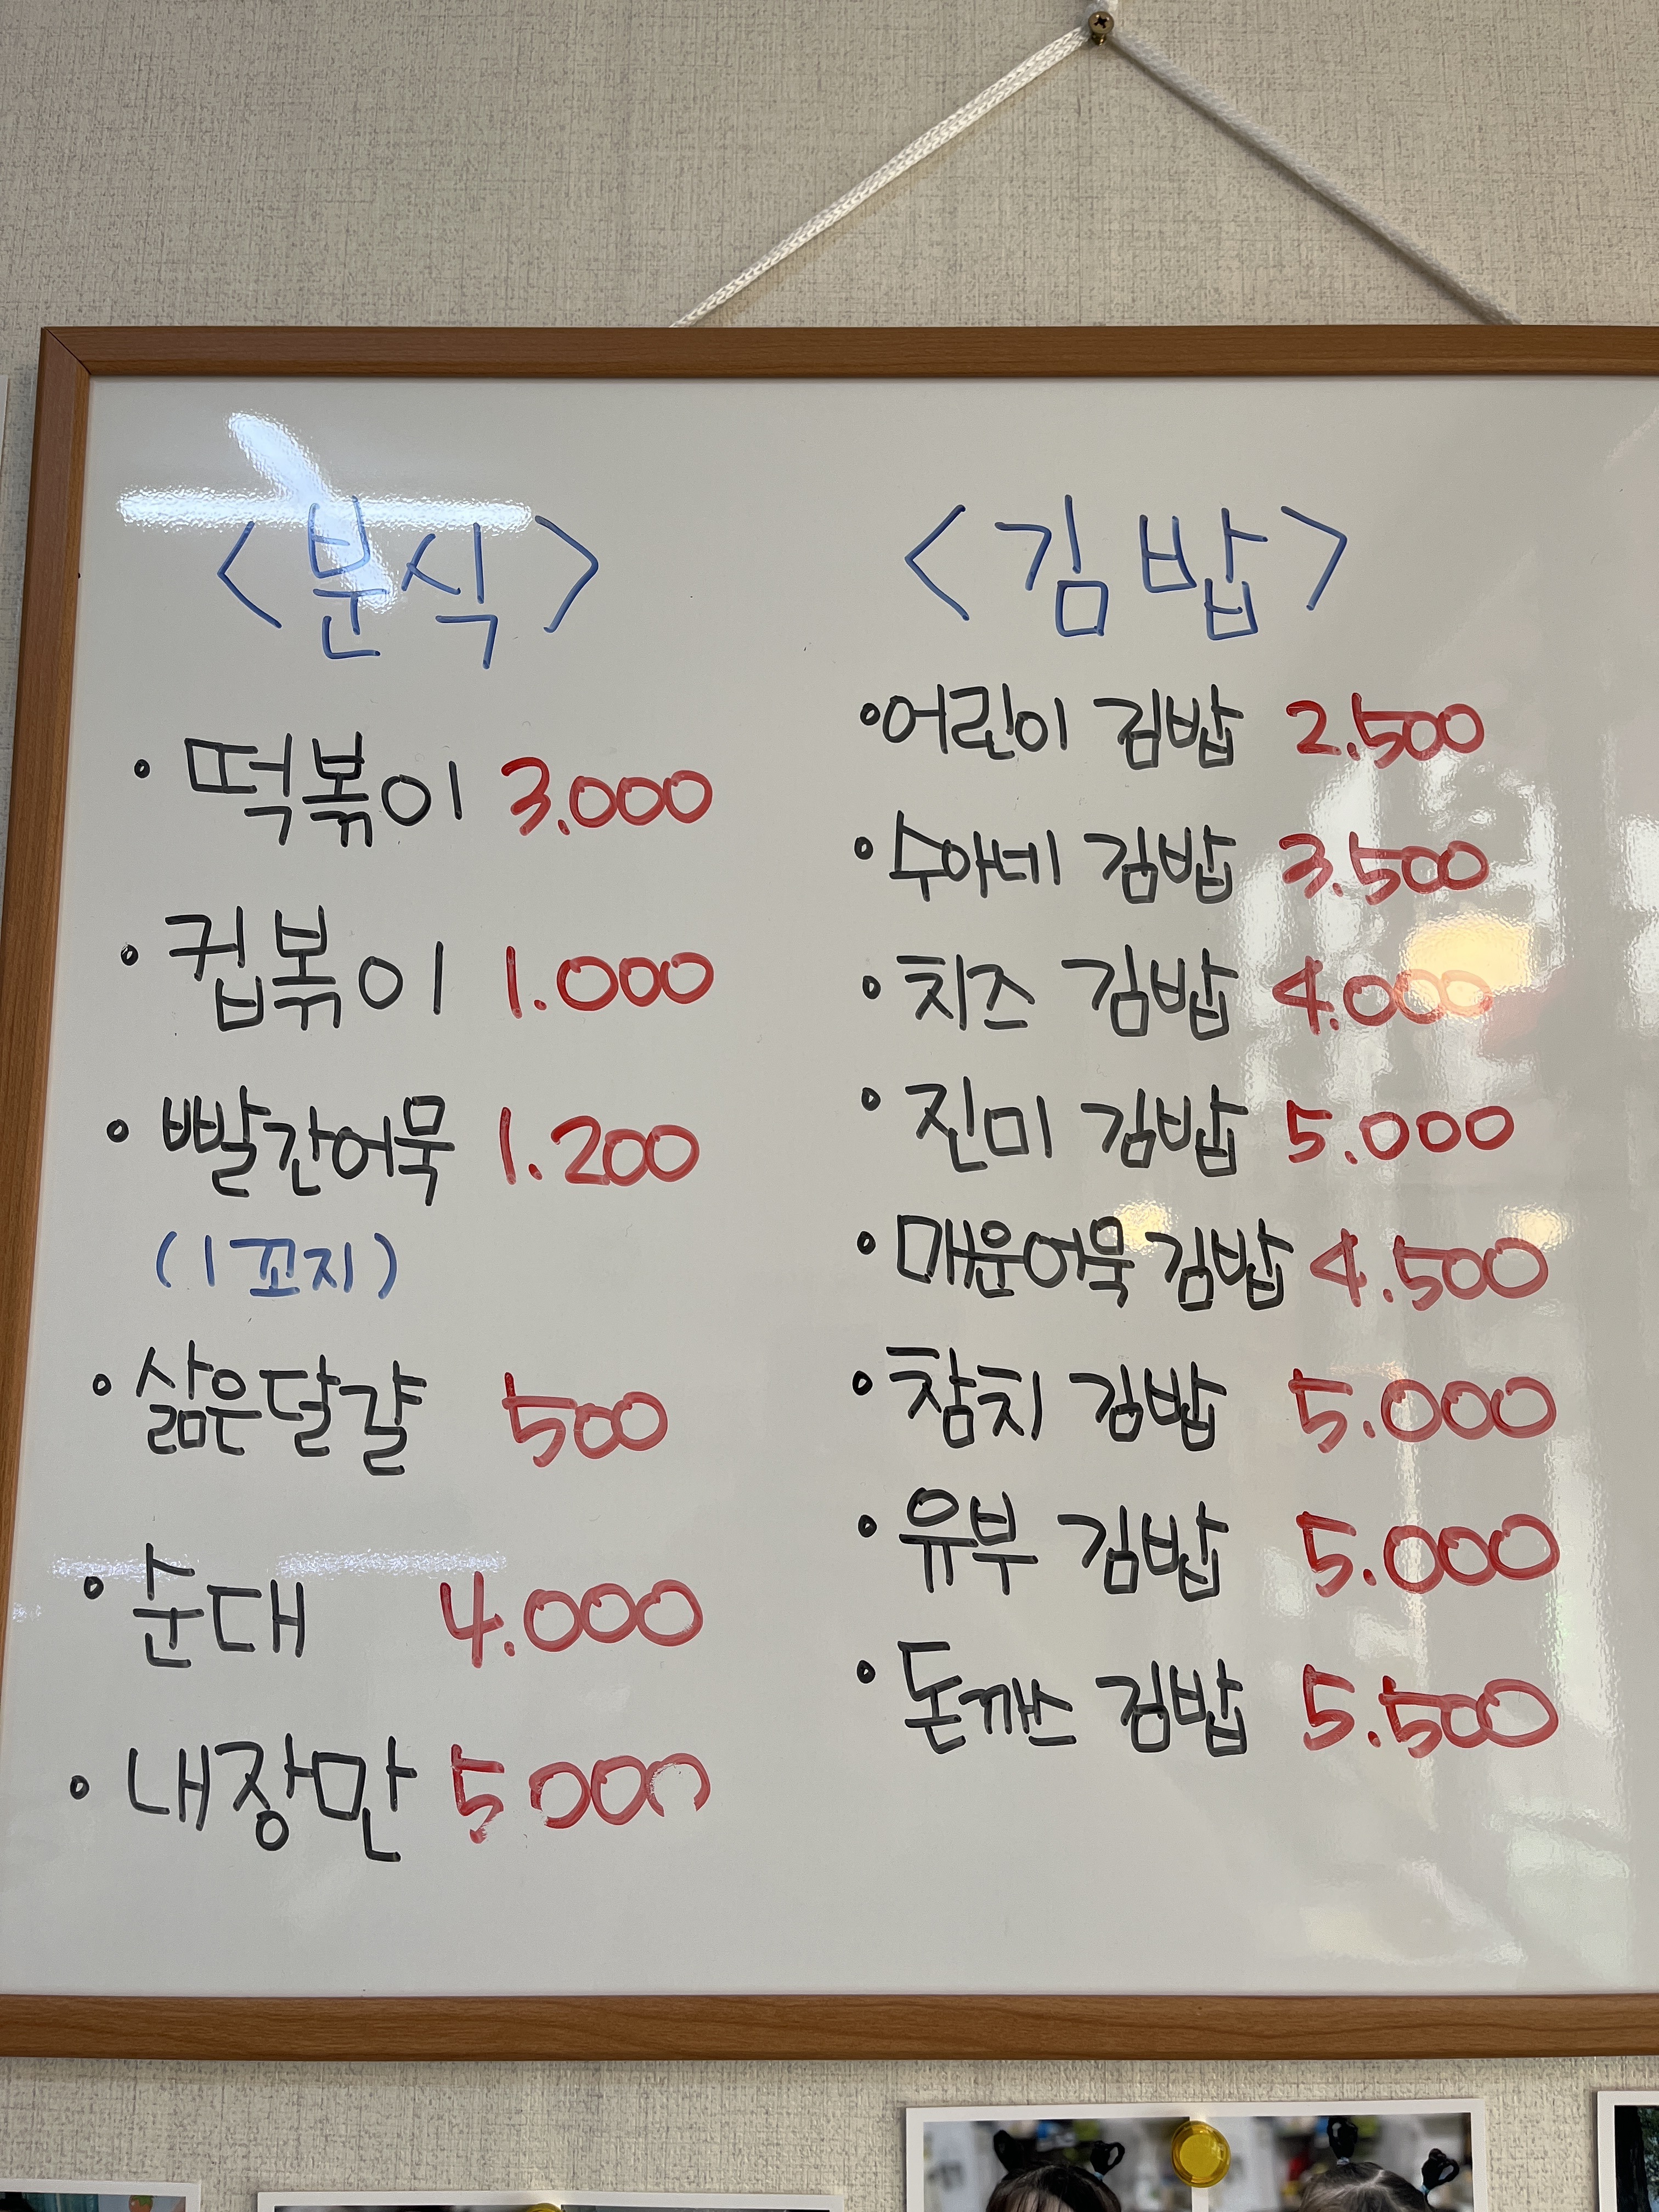 <분식>
• 떡볶이 3.000
• 컵볶이 1.000
• 빨간어묵 1.200
(1꼬지)
• 삶은달걀 500
• 순대 4.000
• 내장만 5000
<김밥>
• 어린이 김밥 2.500
• 수아네 김밥 3.500
• 치즈 김밥 4.000
• 진미 김밥 5.000
• 매운어묵 김밥 4.500
• 참치 김밥 5.000
• 유부 김밥 5.000
• 돈까스 김밥 5.500